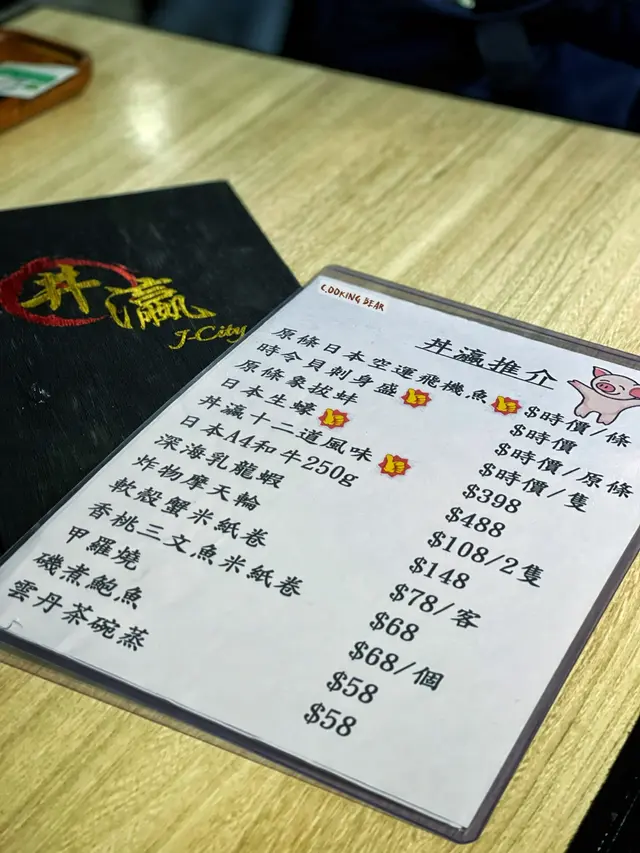 丼瀛
J-City
COOKING BEAR
丼瀛推介
原條日本空運飛機魚 $時價/條
時令貝刺身盛 $時價
原條象拔蚌 $時價/原條
日本生蠔 $時價/隻
丼瀛十二道風味 $398
日本A4和牛250g $488
深海乳龍蝦 $108/2隻
炸物摩天輪 $148
軟殼蟹米紙卷 $78/客
香桃三文魚米紙卷 $68
甲羅燒 $68/個
磯煮鮑魚 $58
雲丹茶碗蒸 $58